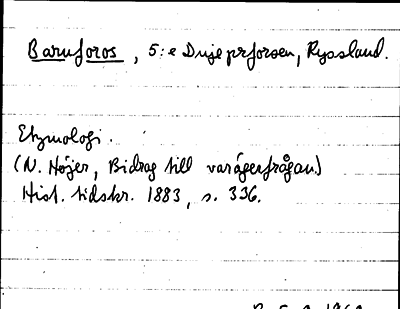 Baruforos, 5:e Dnjeprforsen, Ryssland.
Etymologi.
(N. Höjer, Bidrag till varägerfrågan)
Hist. tidskr. 1883, s. 336.